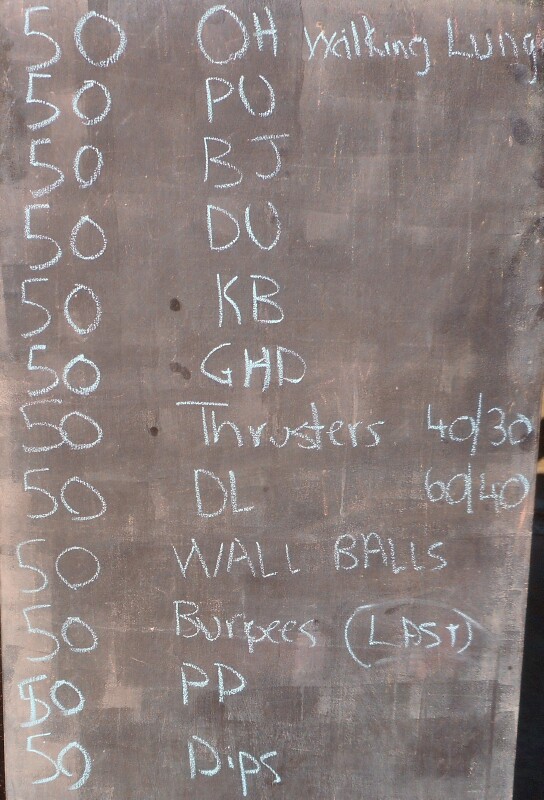 50 OH Walking Lung
50 PU
50 BJ
50 DU
50 KB
50 GHD
50 Thrusters 40/30
50 DL 60/40
50 WALL BALLS
50 Burpees (LAST)
50 PP
50 Dips